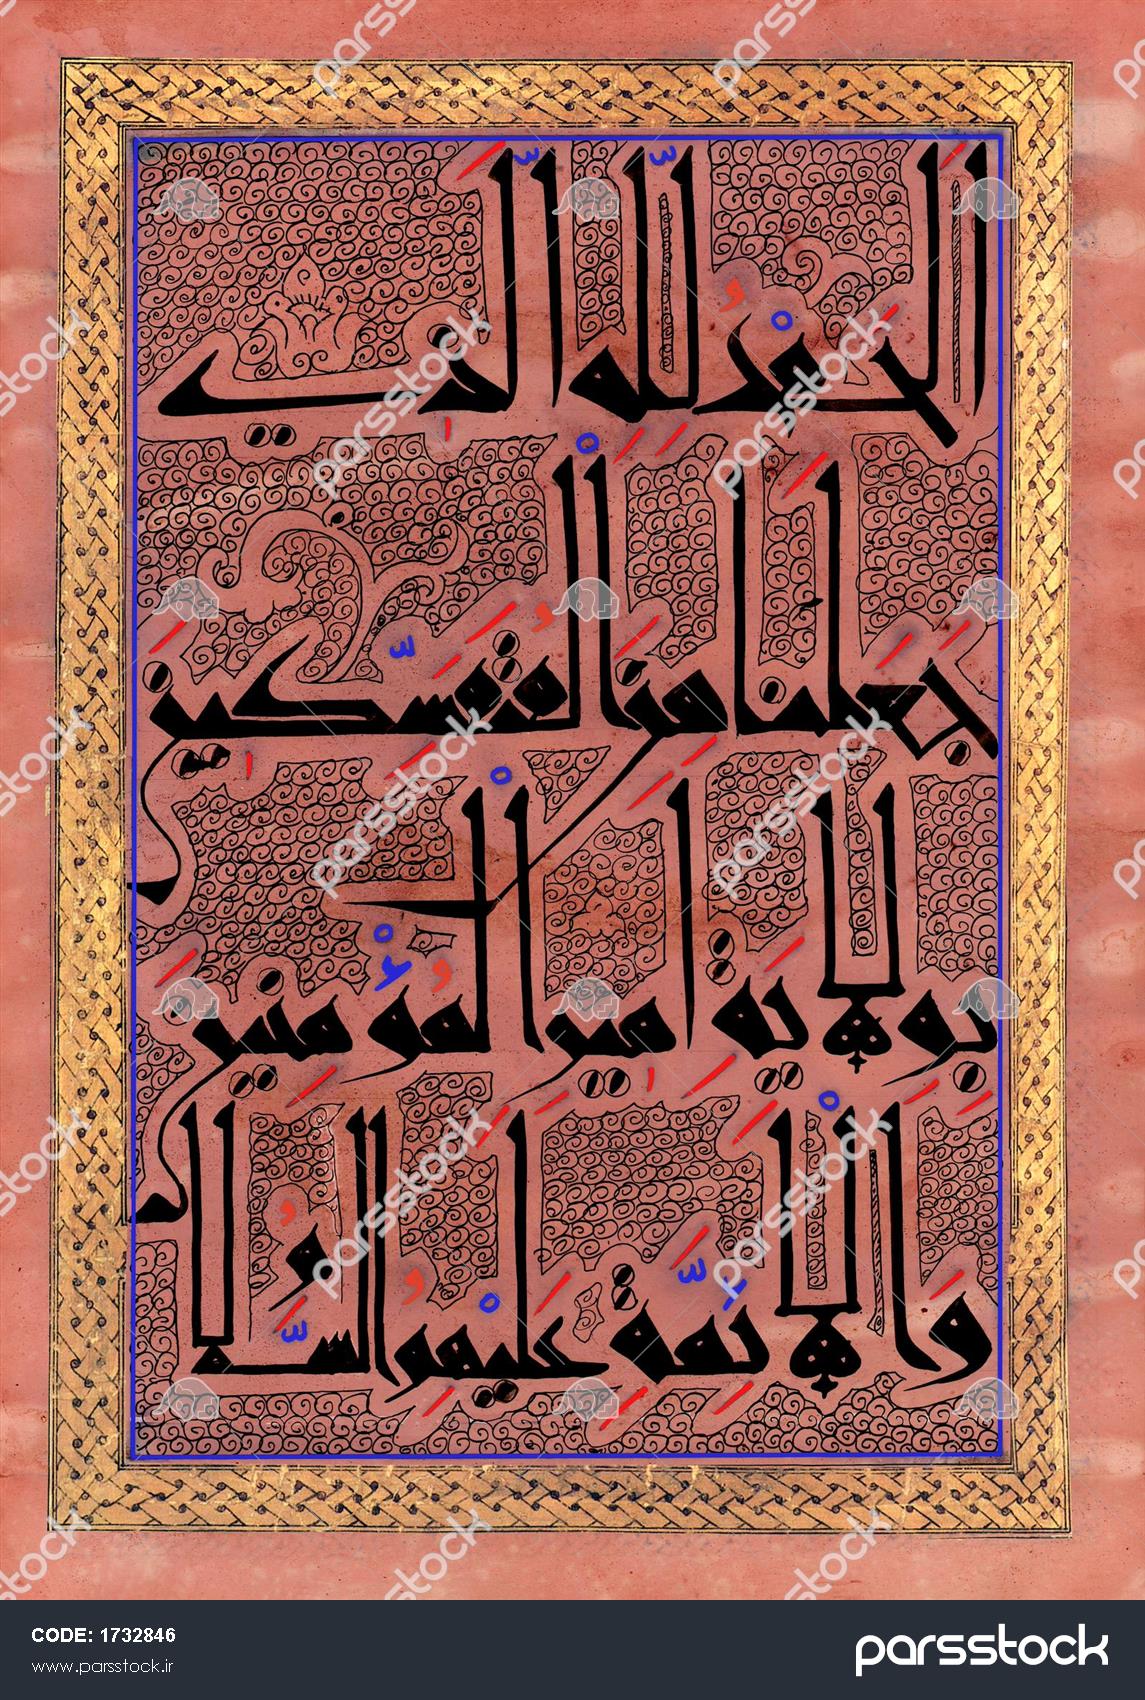 اَلْحَمْدُ لِلّٰهِ الَّذِي
جَعَلَنَا مِنَ الْمُتَمَسِّكِينَ
بِوِلَايَةِ أَمِيرِ الْمُؤْمِنِينَ
وَالْأَئِمَّةِ عَلَيْهِمُ السَّلَامُ
CODE: 1732846
www.parsstock.ir
parsstock